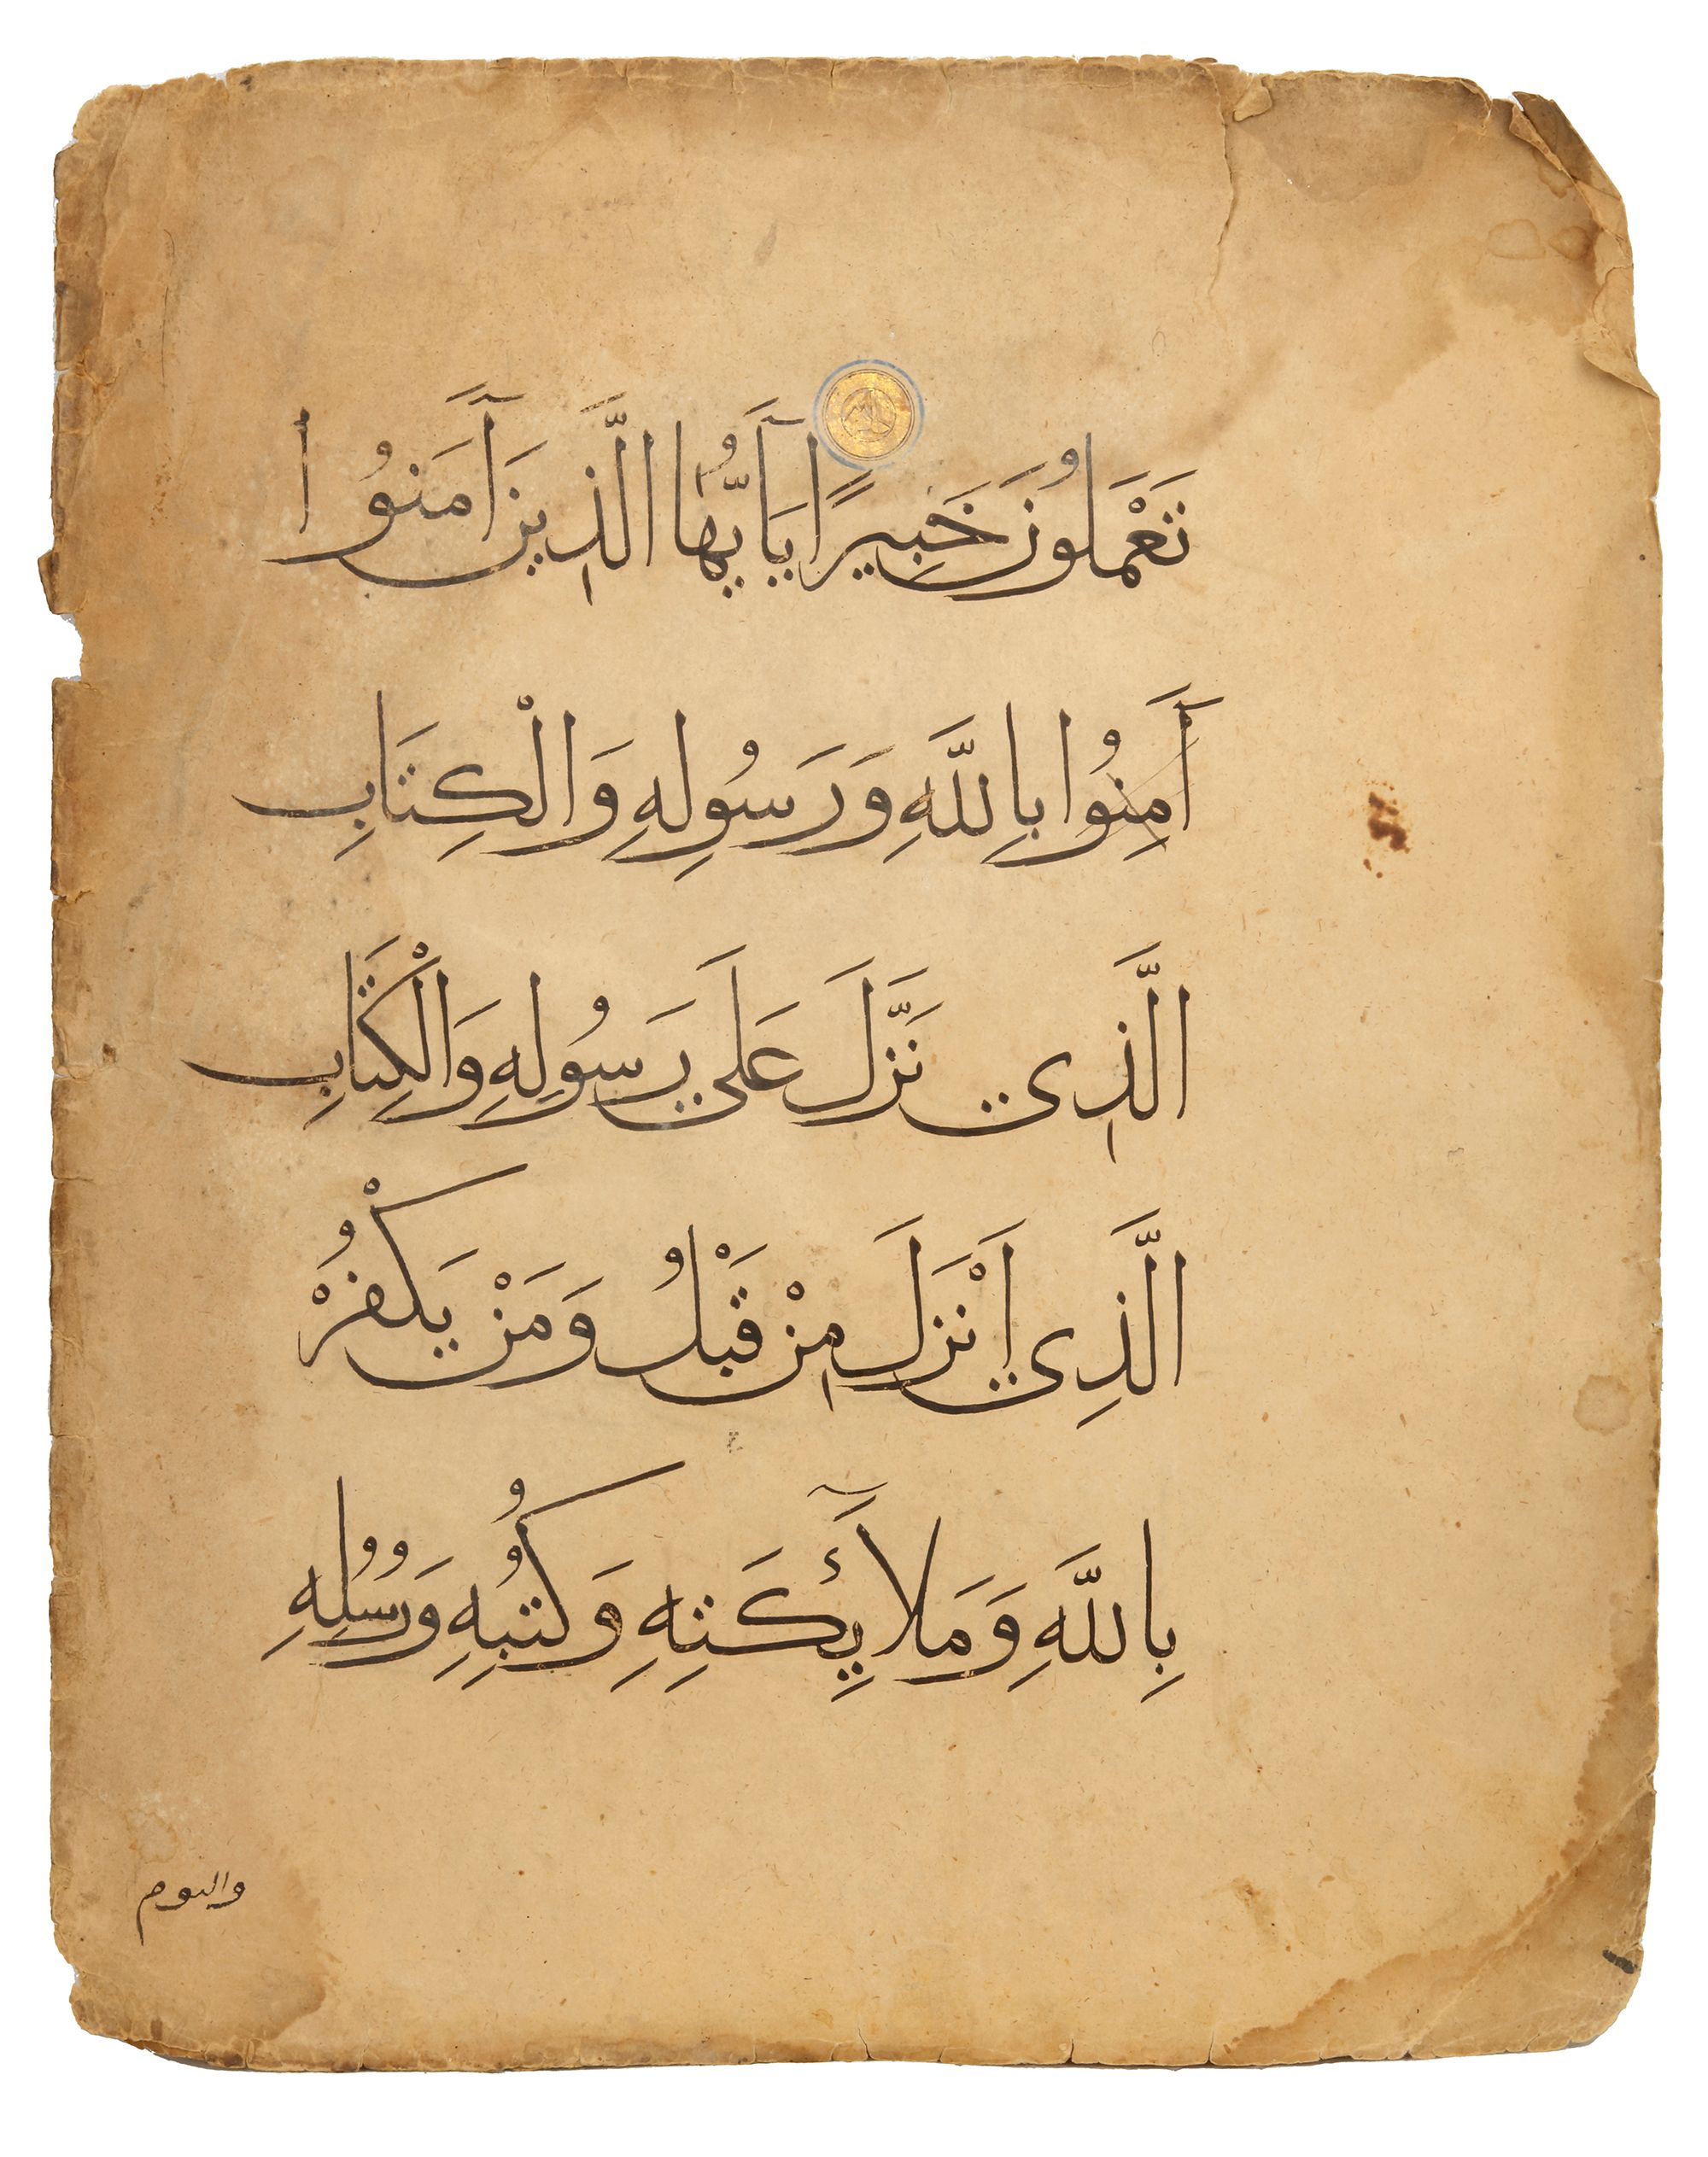 تَعْمَلُونَ خَبِيرًا يَآ أَيُّهَا الَّذِينَ آمَنُوا
آمِنُوا بِاللَّهِ وَرَسُولِهِ وَالْكِتَابِ
الَّذِي نَزَّلَ عَلَى رَسُولِهِ وَالْكِتَابِ
الَّذِي أَنْزَلَ مِنْ قَبْلُ وَمَنْ يَكْفُرْ
بِاللَّهِ وَمَلَآئِكَتِهِ وَكُتُبِهِ وَرُسُلِهِ
واليوم